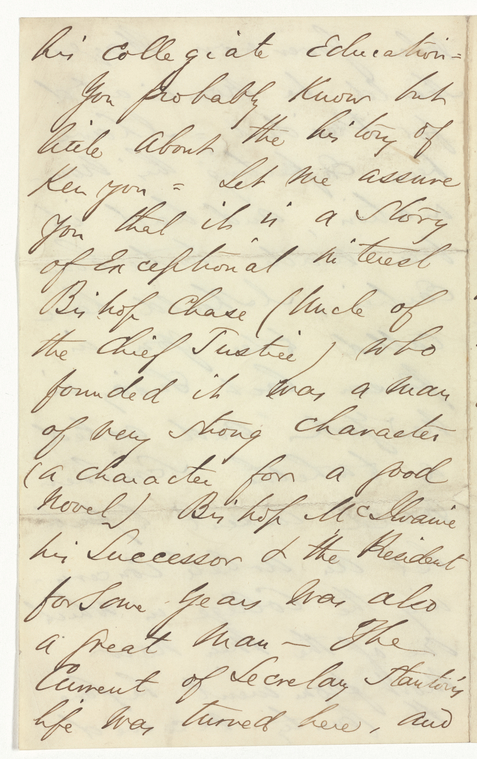 his collegiate Education=
You probably know but
little about the history of
Kenyon = Let me assure
you that it is a Story
of Exceptional interest
Bishop Chase (Uncle of
the Chief Justice) who
founded it was a man
of very strong character
(a character for a good
Novel) Bishop McIlvaine
his Successor & the President
for Some years was also
a great man — The
Current of Secretary Stanton's
life was turned here, and